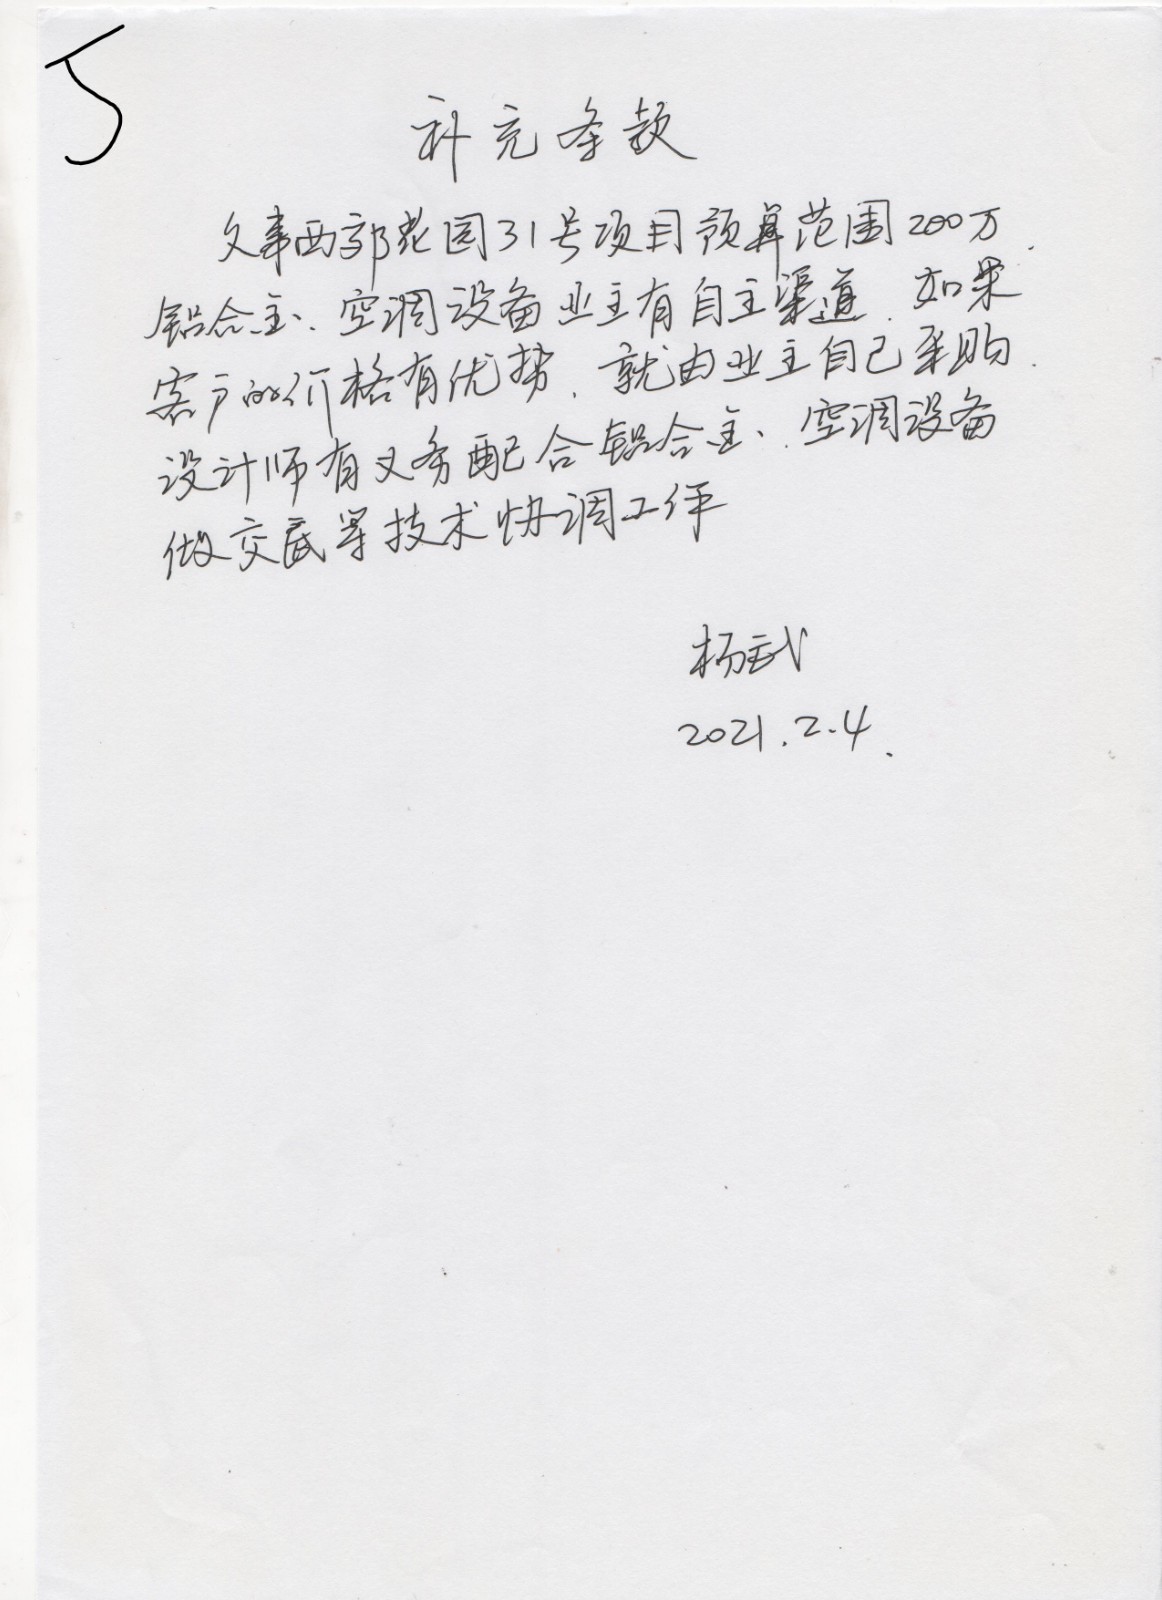 5
补充条款
西郊花园31号项目预算范围200万.
铝合金、空调设备业主有自主渠道.如果
客户的价格有优势.就由业主自己采购.
设计师有义务配合铝合金、空调设备
做交底等技术协调工作
杨
2021.2.4.